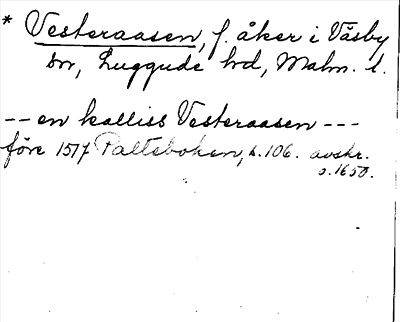 * Vesteraasen, f. åker i Väsby
sn, Luggude hd, Malm. l.
-- en kalliss Vesteraasen ---
före 1517 Palteboken, s. 106. avskr.
o. 1650.